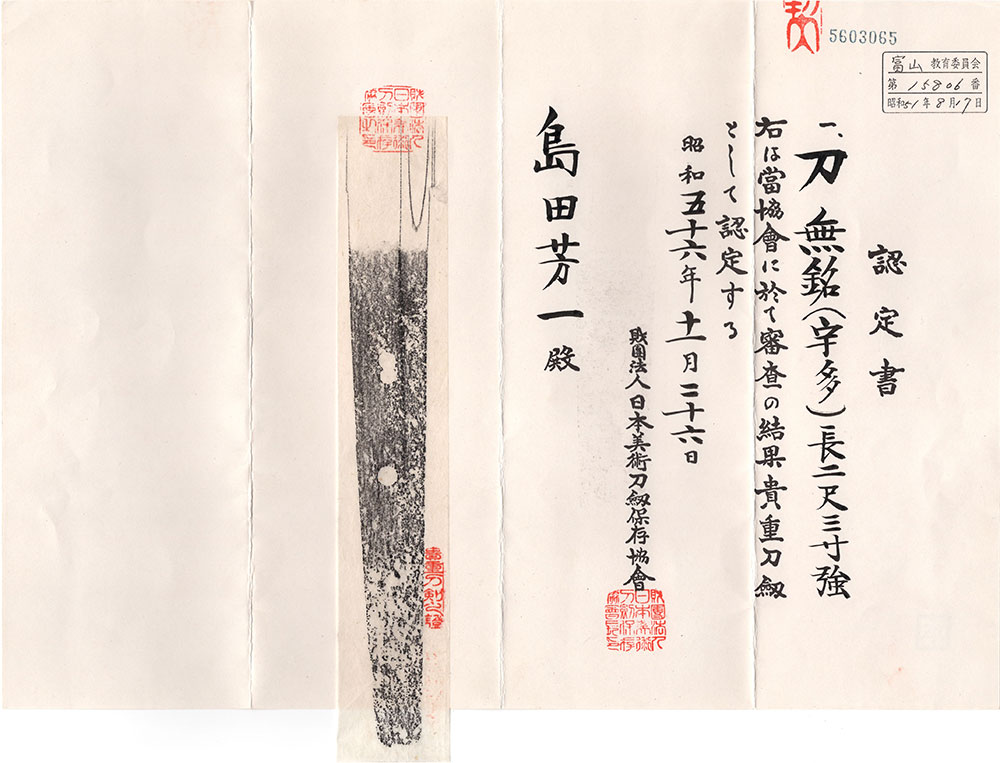 5603065
富山 教育委員会
第 15806 番
昭和51年8月17日
認定書
一、刀 無銘(宇多)長二尺三寸強
右は當協會に於て審査の結果貴重刀剱
として認定する
昭和五十六年十一月二十六日
財團法人日本美術刀剱保存協會
島田芳一殿